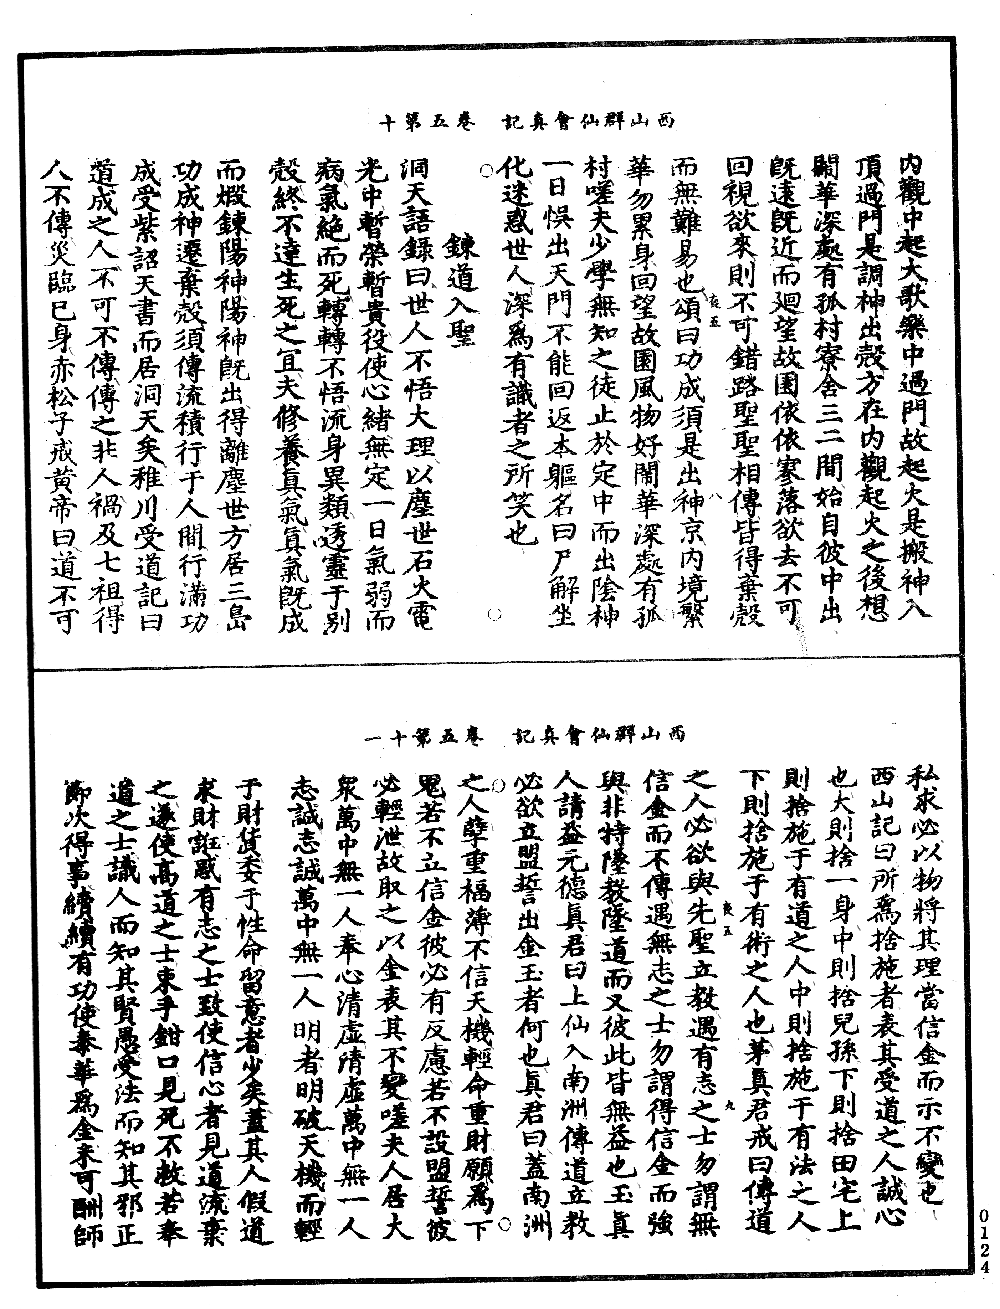 西山群仙會真記　卷五第十
內觀中起大歌樂中過門故起火是搬神入
頂過門是調神出殼方在內觀起火之後想
鬧華深處有孤村寮舍三二間始自彼中出
既遠既近而廻望故園依依寥落欲去不可
回視欲來則不可錯路聖聖相傳皆得棄殼
而無難易也頌曰功成須是出神京內境繁
華勿累身回望故園風物好鬧華深處有孤
村嗟夫少學無知之徒止於定中而出陰神
一日悞出天門不能回返本軀名曰尸解坐
化迷惑世人深爲有識者之所笑也
鍊道入聖
洞天語錄曰世人不悟大理以塵世石火電
光中暫榮暫貴役使心緒無定一日氣弱而
病氣絕而死轉轉不悟流身異類透靈于別
殼終不達生死之宜夫修養真氣真氣既成
而煆鍊陽神陽神既出得離塵世方居三島
功成神遷棄殼須傳流積行于人間行滿功
成受紫詔天書而居洞天矣稚川受道記曰
道成之人不可不傳傳之非人禍及七祖得
人不傳災臨已身赤松子戒黃帝曰道不可
西山群仙會真記　卷五第十一
私求必以物將其理當信金而示不變也
西山記曰所爲捨施者表其受道之人誠心
也大則捨一身中則捨兒孫下則捨田宅上
則捨施于有道之人中則捨施于有法之人
下則捨施于有術之人也茅真君戒曰傳道
之人必欲與先聖立教遇有志之士勿謂無
信金而不傳遇無志之士勿謂得信金而強
與非特墜教墜道而又彼此皆無益也玉真
人請益元德真君曰上仙入南洲傳道立教
必欲立盟誓出金玉者何也真君曰蓋南洲
之人孽重福薄不信天機輕命重財願爲下
鬼若不立信金彼必有反慮若不設盟誓彼
必輕泄故取之以金表其不變嗟夫人居大
眾萬中無一人奉心清虛清虛萬中無一人
志誠志誠萬中無一人明者明破天機而輕
于財貨委于性命留意者少矣蓋其人假道
求財誑惑有志之士致使信心者見道流棄
之遂使高道之士束手鉗口見死不救若奉
道之士識人而知其賢愚受法而知其邪正
節次得事續續有功使泰華爲金未可酬師
哀五
八
哀五
九
0124